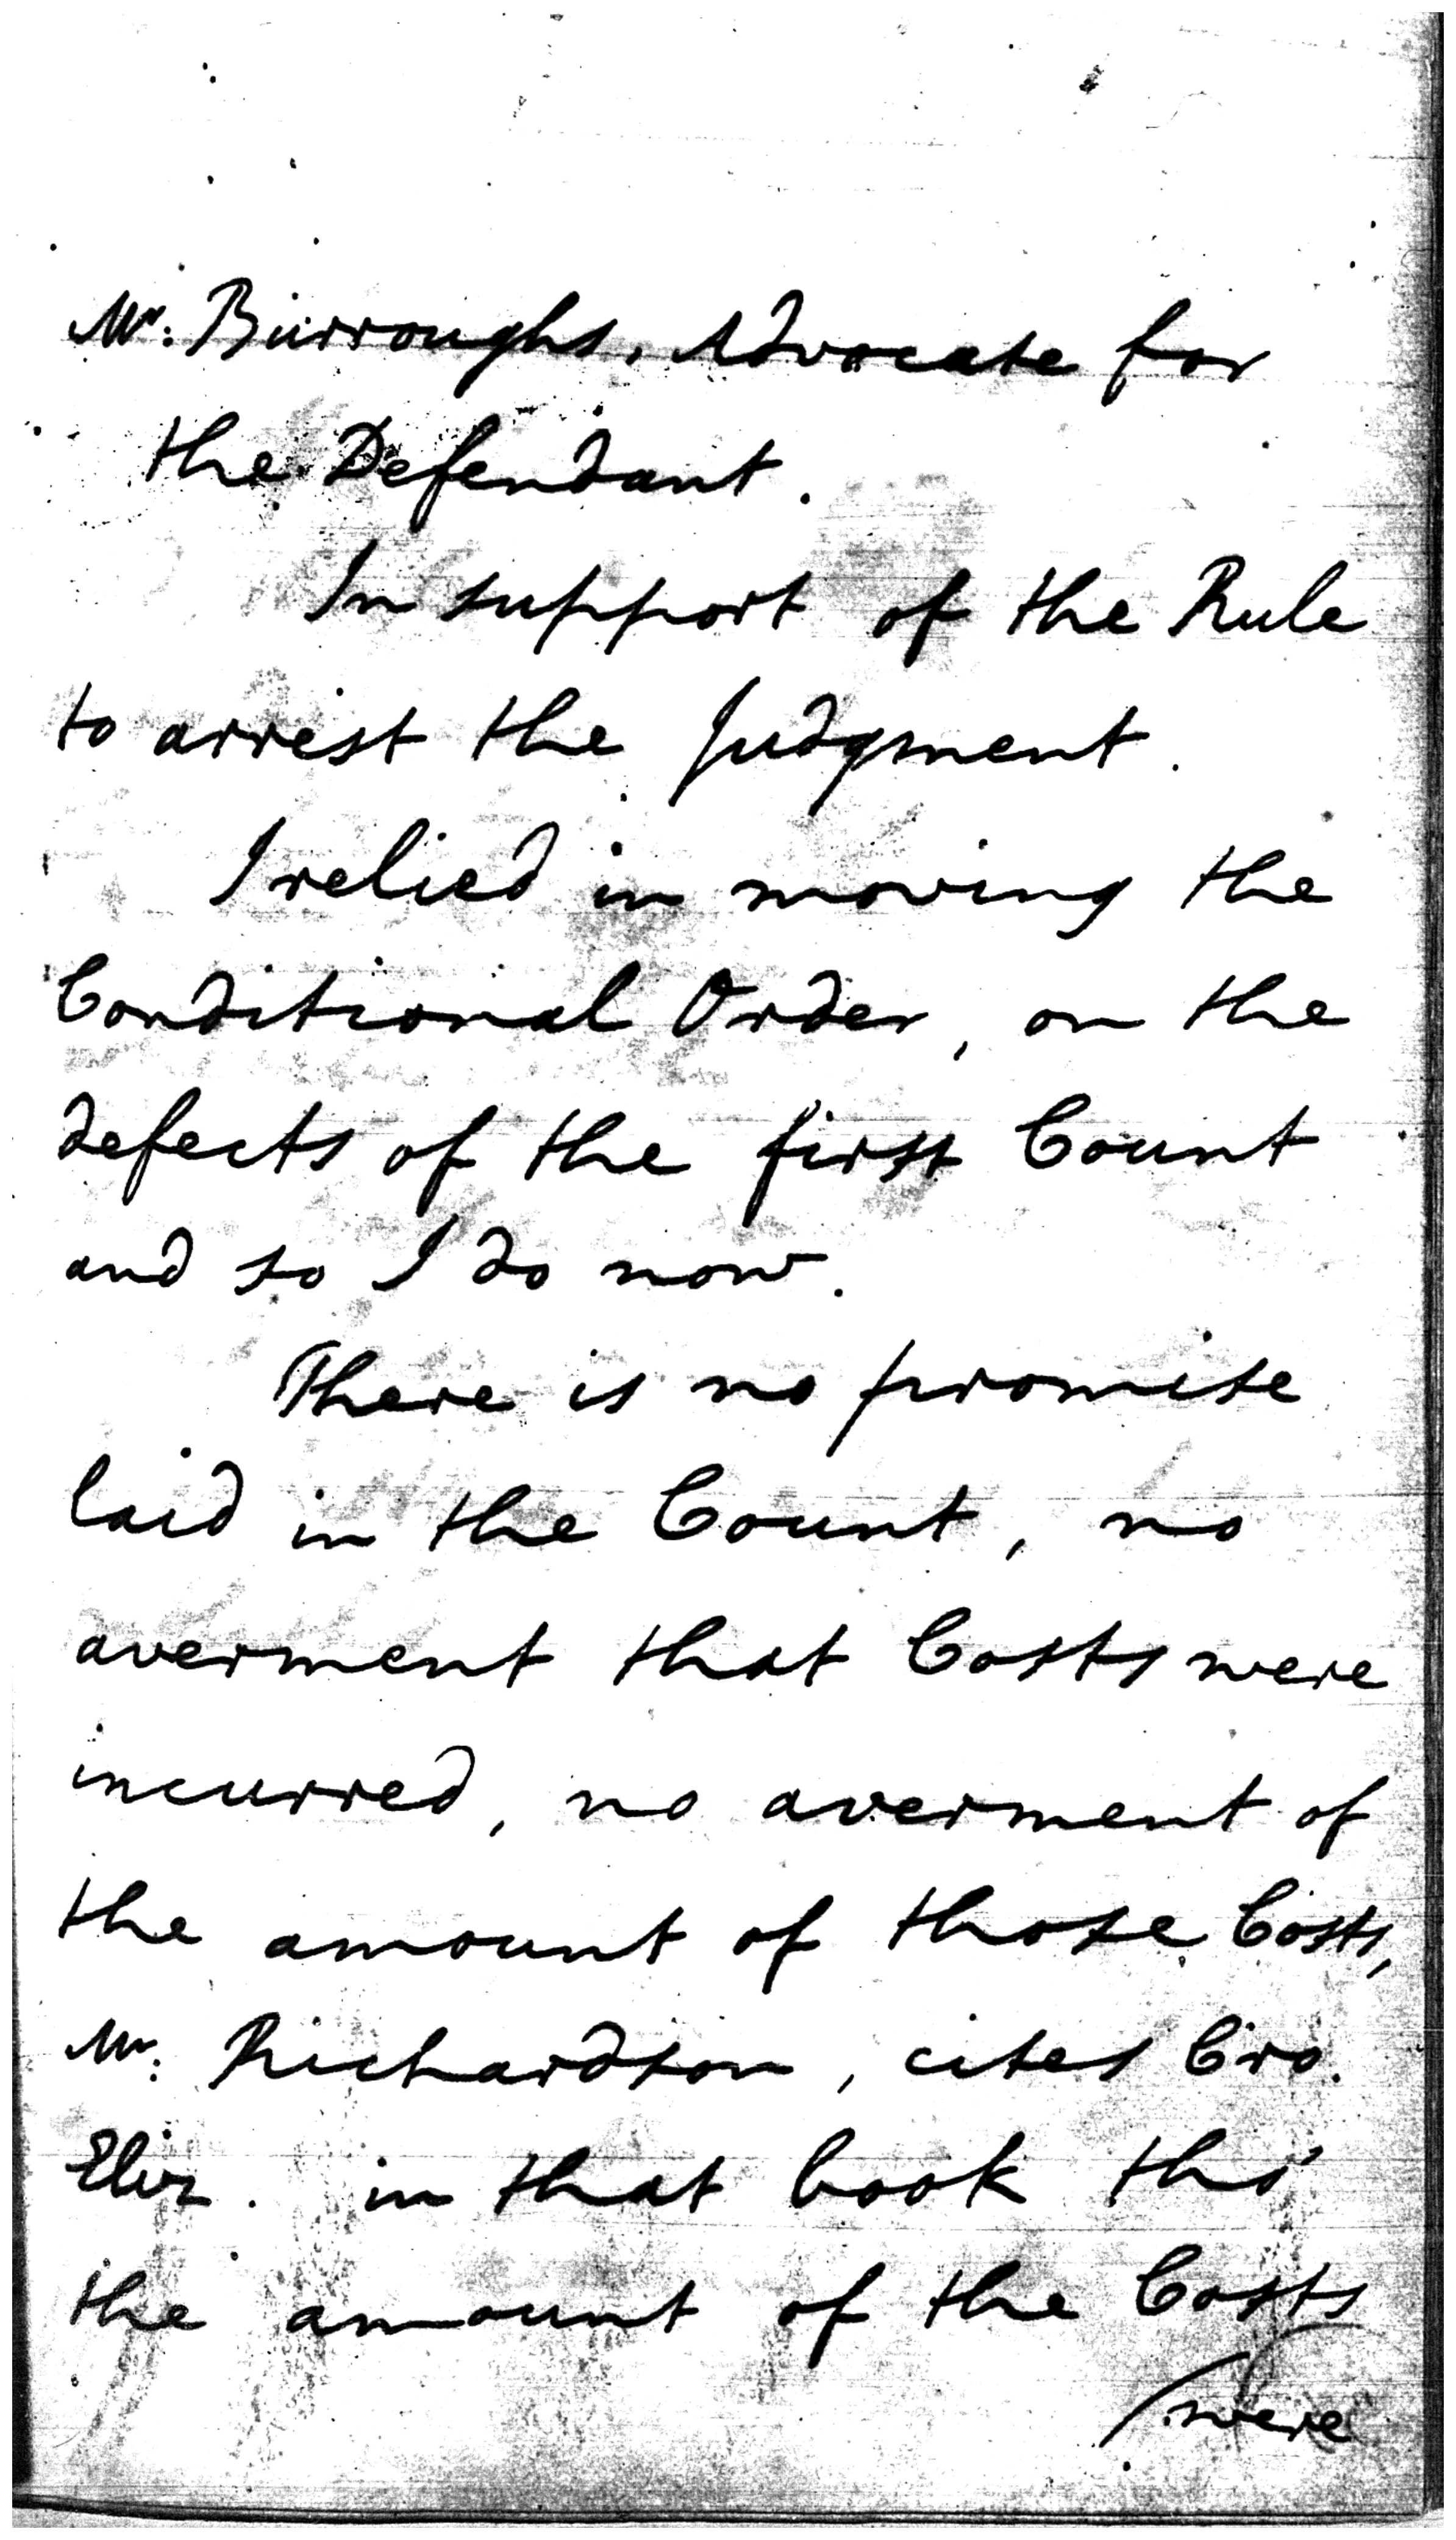 Mr. Burroughs, Advocate for
the Defendant.
In support of the Rule
to arrest the Judgment.
I relied in moving the
Conditional Order, on the
defects of the first Count
and so I do now.
There is no promise
laid in the Count, no
averment that Costs were
incurred, no averment of
the amount of those Costs,
Mr. Richardson, cites Cro.
Eliz. in that book tho'
the amount of the Costs
were